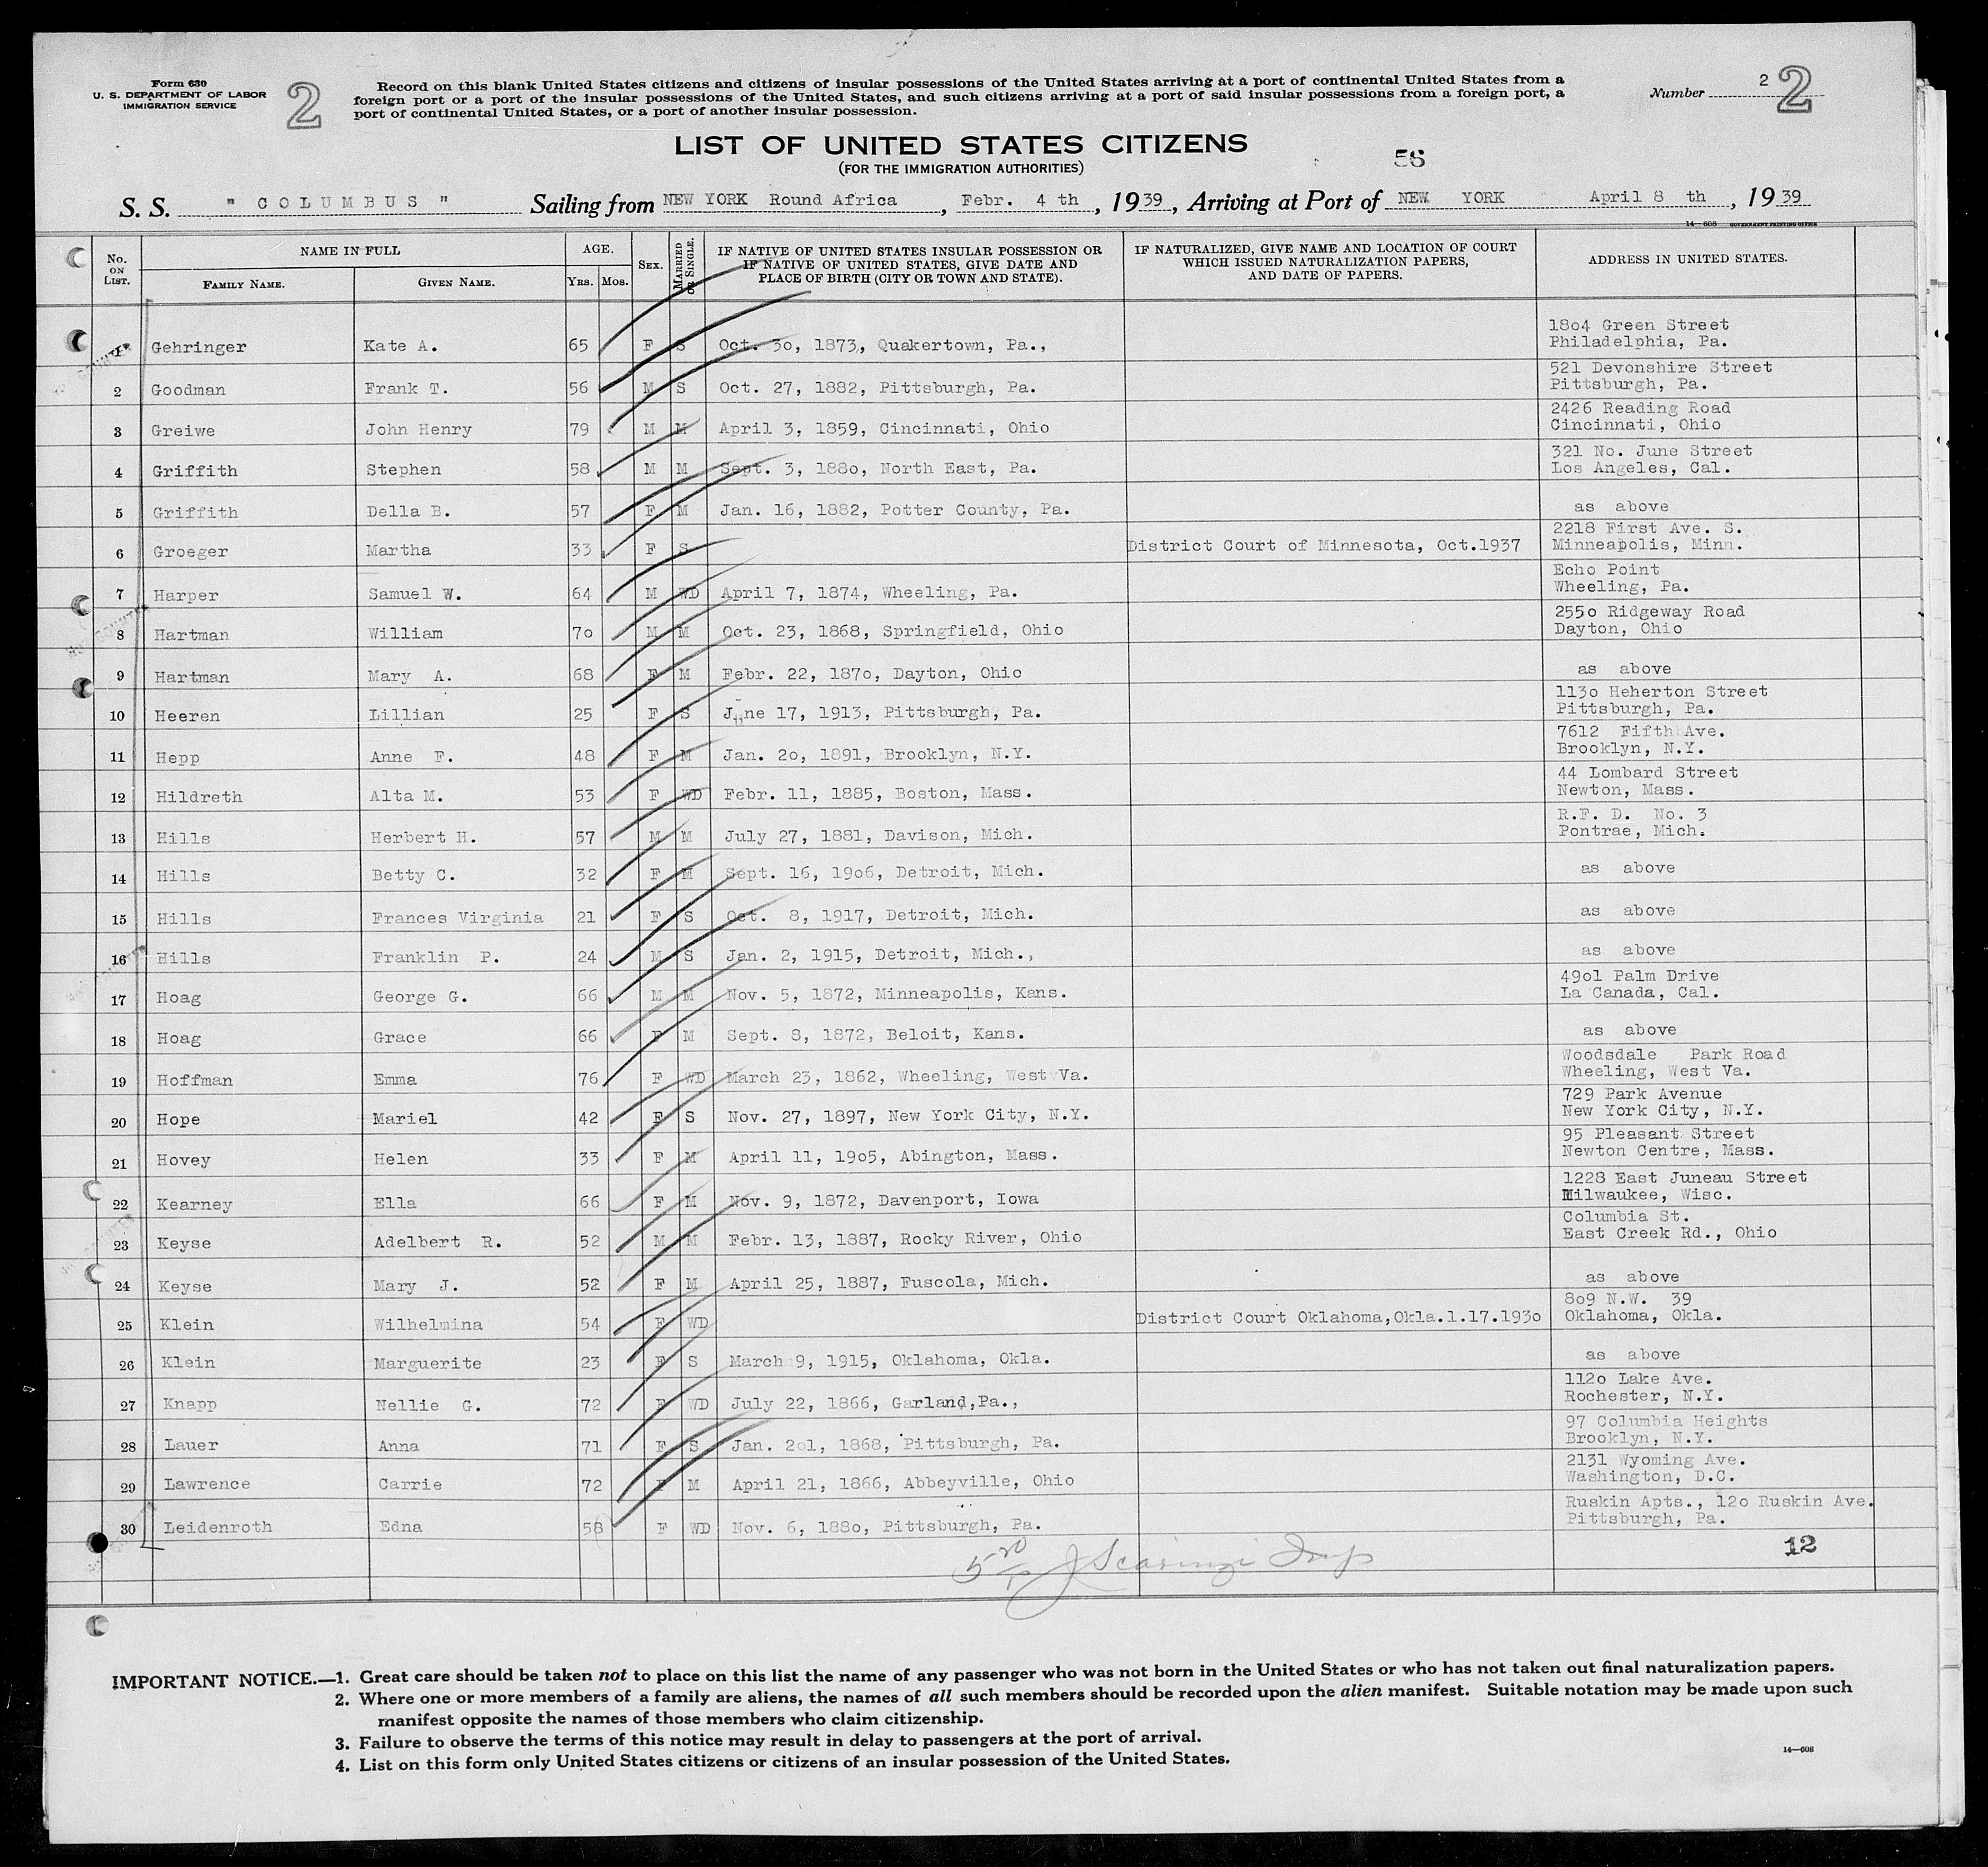 Form 630
U. S. DEPARTMENT OF LABOR
IMMIGRATION SERVICE
2
Record on this blank United States citizens and citizens of insular possessions of the United States arriving at a port of continental United States from a
foreign port or a port of the insular possessions of the United States, and such citizens arriving at a port of said insular possessions from a foreign port, a
port of continental United States, or a port of another insular possession.
Number 2
2
LIST OF UNITED STATES CITIZENS
(FOR THE IMMIGRATION AUTHORITIES)
56
S. S. " COLUMBUS " Sailing from NEW YORK Round Africa, Febr. 4 th, 1939, Arriving at Port of NEW YORK April 8 th, 1939
14—608 GOVERNMENT PRINTING OFFICE
No. ON LIST. NAME IN FULL FAMILY NAME. GIVEN NAME. AGE. YRS. MOS. SEX. MARRIED OR SINGLE. IF NATIVE OF UNITED STATES INSULAR POSSESSION OR IF NATIVE OF UNITED STATES, GIVE DATE AND PLACE OF BIRTH (CITY OR TOWN AND STATE). IF NATURALIZED, GIVE NAME AND LOCATION OF COURT WHICH ISSUED NATURALIZATION PAPERS, AND DATE OF PAPERS. ADDRESS IN UNITED STATES.
1 Gehringer Kate A. 65 F S Oct. 3o, 1873, Quakertown, Pa., 18o4 Green Street Philadelphia, Pa.
2 Goodman Frank T. 56 M S Oct. 27, 1882, Pittsburgh, Pa. 521 Devonshire Street Pittsburgh, Pa.
3 Greiwe John Henry 79 M M April 3, 1859, Cincinnati, Ohio 2426 Reading Road Cincinnati, Ohio
4 Griffith Stephen 58 M M Sept. 3, 188o, North East, Pa. 321 No. June Street Los Angeles, Cal.
5 Griffith Della B. 57 F M Jan. 16, 1882, Potter County, Pa. as above
6 Groeger Martha 33 F S District Court of Minnesota, Oct.1937 2218 First Ave. S. Minneapolis, Minn.
7 Harper Samuel W. 64 M WD April 7, 1874, Wheeling, Pa. Echo Point Wheeling, Pa.
8 Hartman William 7o M M Oct. 23, 1868, Springfield, Ohio 255o Ridgeway Road Dayton, Ohio
9 Hartman Mary A. 68 F M Febr. 22, 187o, Dayton, Ohio as above
10 Heeren Lillian 25 F S June 17, 1913, Pittsburgh, Pa. 113o Heherton Street Pittsburgh, Pa.
11 Hepp Anne F. 48 F M Jan. 2o, 1891, Brooklyn, N.Y. 7612 Fifth Ave. Brooklyn, N.Y.
12 Hildreth Alta M. 53 F WD Febr. 11, 1885, Boston, Mass. 44 Lombard Street Newton, Mass.
13 Hills Herbert H. 57 M M July 27, 1881, Davison, Mich. R.F. D. No. 3 Pontrae, Mich.
14 Hills Betty C. 32 F M Sept. 16, 19o6, Detroit, Mich. as above
15 Hills Frances Virginia 21 F S Oct. 8, 1917, Detroit, Mich. as above
16 Hills Franklin P. 24 M S Jan. 2, 1915, Detroit, Mich., as above
17 Hoag George G. 66 M M Nov. 5, 1872, Minneapolis, Kans. 49o1 Palm Drive La Canada, Cal.
18 Hoag Grace 66 F M Sept. 8, 1872, Beloit, Kans. as above
19 Hoffman Emma 76 F WD March 23, 1862, Wheeling, West Va. Woodsdale Park Road Wheeling, West Va.
20 Hope Mariel 42 F S Nov. 27, 1897, New York City, N.Y. 729 Park Avenue New York City, N.Y.
21 Hovey Helen 33 F M April 11, 19o5, Abington, Mass. 95 Pleasant Street Newton Centre, Mass.
22 Kearney Ella 66 F M Nov. 9, 1872, Davenport, Iowa 1228 East Juneau Street Milwaukee, Wisc.
23 Keyse Adelbert R. 52 M M Febr. 13, 1887, Rocky River, Ohio Columbia St. East Creek Rd., Ohio
24 Keyse Mary J. 52 F M April 25, 1887, Fuscola, Mich. as above
25 Klein Wilhelmina 54 F WD District Court Oklahoma,Okla.1.17.193o 8o9 N.W. 39 Oklahoma, Okla.
26 Klein Marguerite 23 F S March 9, 1915, Oklahoma, Okla. as above
27 Knapp Nellie G. 72 F WD July 22, 1866, Garland,Pa., 112o Lake Ave. Rochester, N.Y.
28 Lauer Anna 71 F S Jan. 2o1, 1868, Pittsburgh, Pa. 97 Columbia Heights Brooklyn, N.Y.
29 Lawrence Carrie 72 F M April 21, 1866, Abbeyville, Ohio 2131 Wyoming Ave. Washington, D.C.
30 Leidenroth Edna 58 F WD Nov. 6, 188o, Pittsburgh, Pa. Ruskin Apts., 12o Ruskin Ave. Pittsburgh, Pa.
12
IMPORTANT NOTICE.—1. Great care should be taken not to place on this list the name of any passenger who was not born in the United States or who has not taken out final naturalization papers.
2. Where one or more members of a family are aliens, the names of all such members should be recorded upon the alien manifest. Suitable notation may be made upon such
manifest opposite the names of those members who claim citizenship.
3. Failure to observe the terms of this notice may result in delay to passengers at the port of arrival.
4. List on this form only United States citizens or citizens of an insular possession of the United States.
14—608